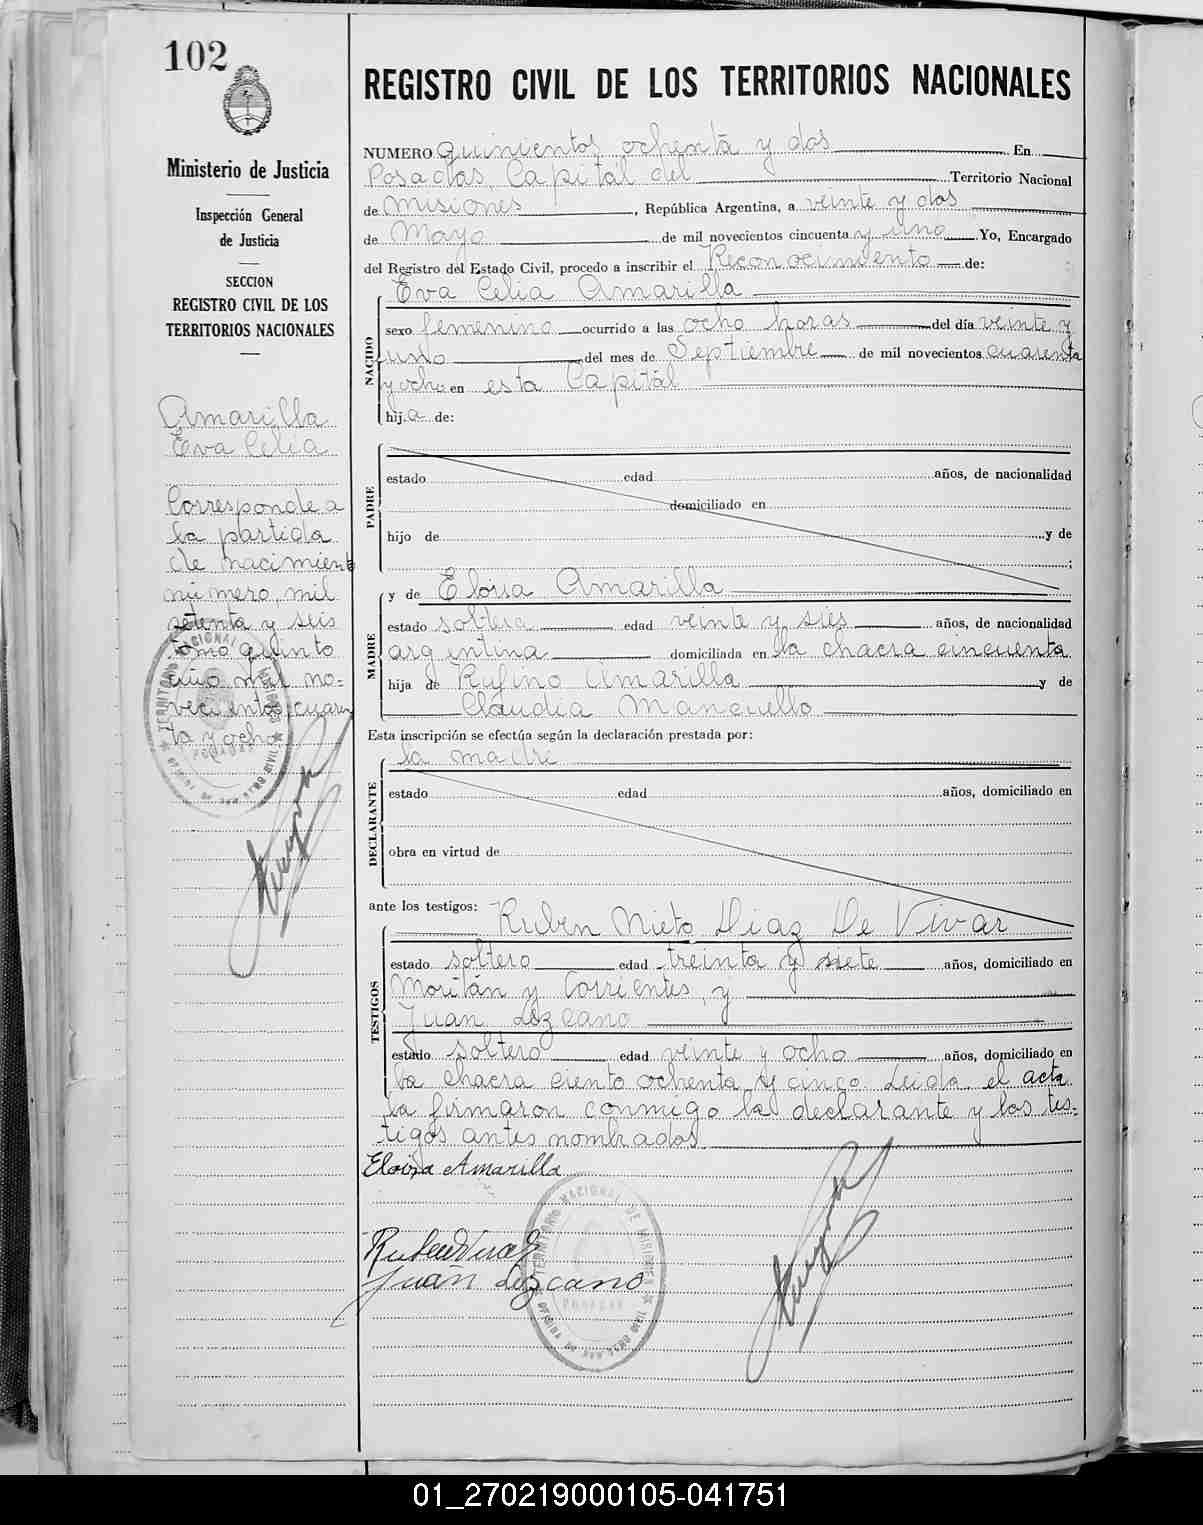 102
Ministerio de Justicia
Inspección General
de Justicia
SECCION
REGISTRO CIVIL DE LOS
TERRITORIOS NACIONALES
Amarilla
Eva Celia
Corresponde a
la partida
de nacimient
número, mil
setenta y seis
tomo quinto
año mil no=
vecientos cuaren
ta y ocho
REGISTRO CIVIL DE LOS TERRITORIOS NACIONALES
NUMERO quinientos ochenta y dos En
Posadas, Capital del Territorio Nacional
de Misiones, República Argentina, a veinte y dos
de Mayo de mil novecientos cincuenta y uno Yo, Encargado
del Registro del Estado Civil, procedo a inscribir el Reconocimiento de:
Eva Celia Amarilla
NACIDO
sexo femenino ocurrido a las ocho horas del día veinte y
uno del mes de Septiembre de mil novecientos cuarenta
y ocho en esta Capital
hija de:
PADRE
estado edad años, de nacionalidad
domiciliado en
hijo de y de
;
MADRE
y de Eloisa Amarilla
estado soltera edad veinte y seis años, de nacionalidad
argentina domiciliada en la chacra cincuenta
hija de Rufino Amarilla y de
Claudia Mancuello
Esta inscripción se efectúa según la declaración prestada por:
la madre
DECLARANTE
estado edad años, domiciliado en
obra en virtud de
ante los testigos: Ruben Nieto Diaz De Vivar
TESTIGOS
estado soltero edad treinta y siete años, domiciliado en
Moritán y Corrientes, y
Juan Lezcano
estado soltero edad veinte y ocho años, domiciliado en
la chacra ciento ochenta y cinco. Leida el acta
la firmaron conmigo la declarante y los tes-
tigos antes nombrados
Eloisa Amarilla
Juan Lezcano
TERRITORIO NACIONAL DE MISIONES
POSADAS
01_270219000105-041751